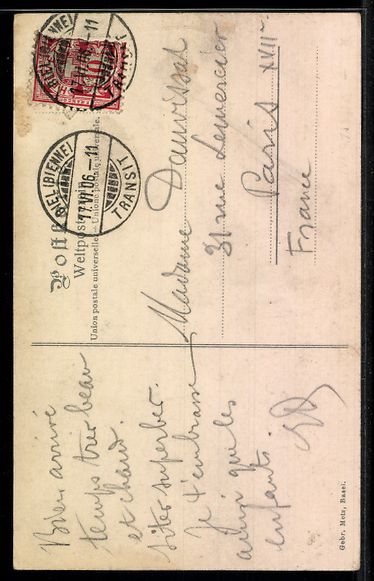 Postkarte.
Weltpostverein.
Union postale universelle. Unione postale universale.
BIEL (BIENNE)
17.VI.06.-11
TRANSIT
BIEL (BIENNE)
17.VI.06.-11
TRANSIT
10
Madame Dauvissat
31 rue Lemercier
Paris XVII
France
Bien arrivé
temps très beau
et chaud.
Sites superbes.
Je t'embrasse
ainsi que les
enfants.
Gebr. Metz, Basel.